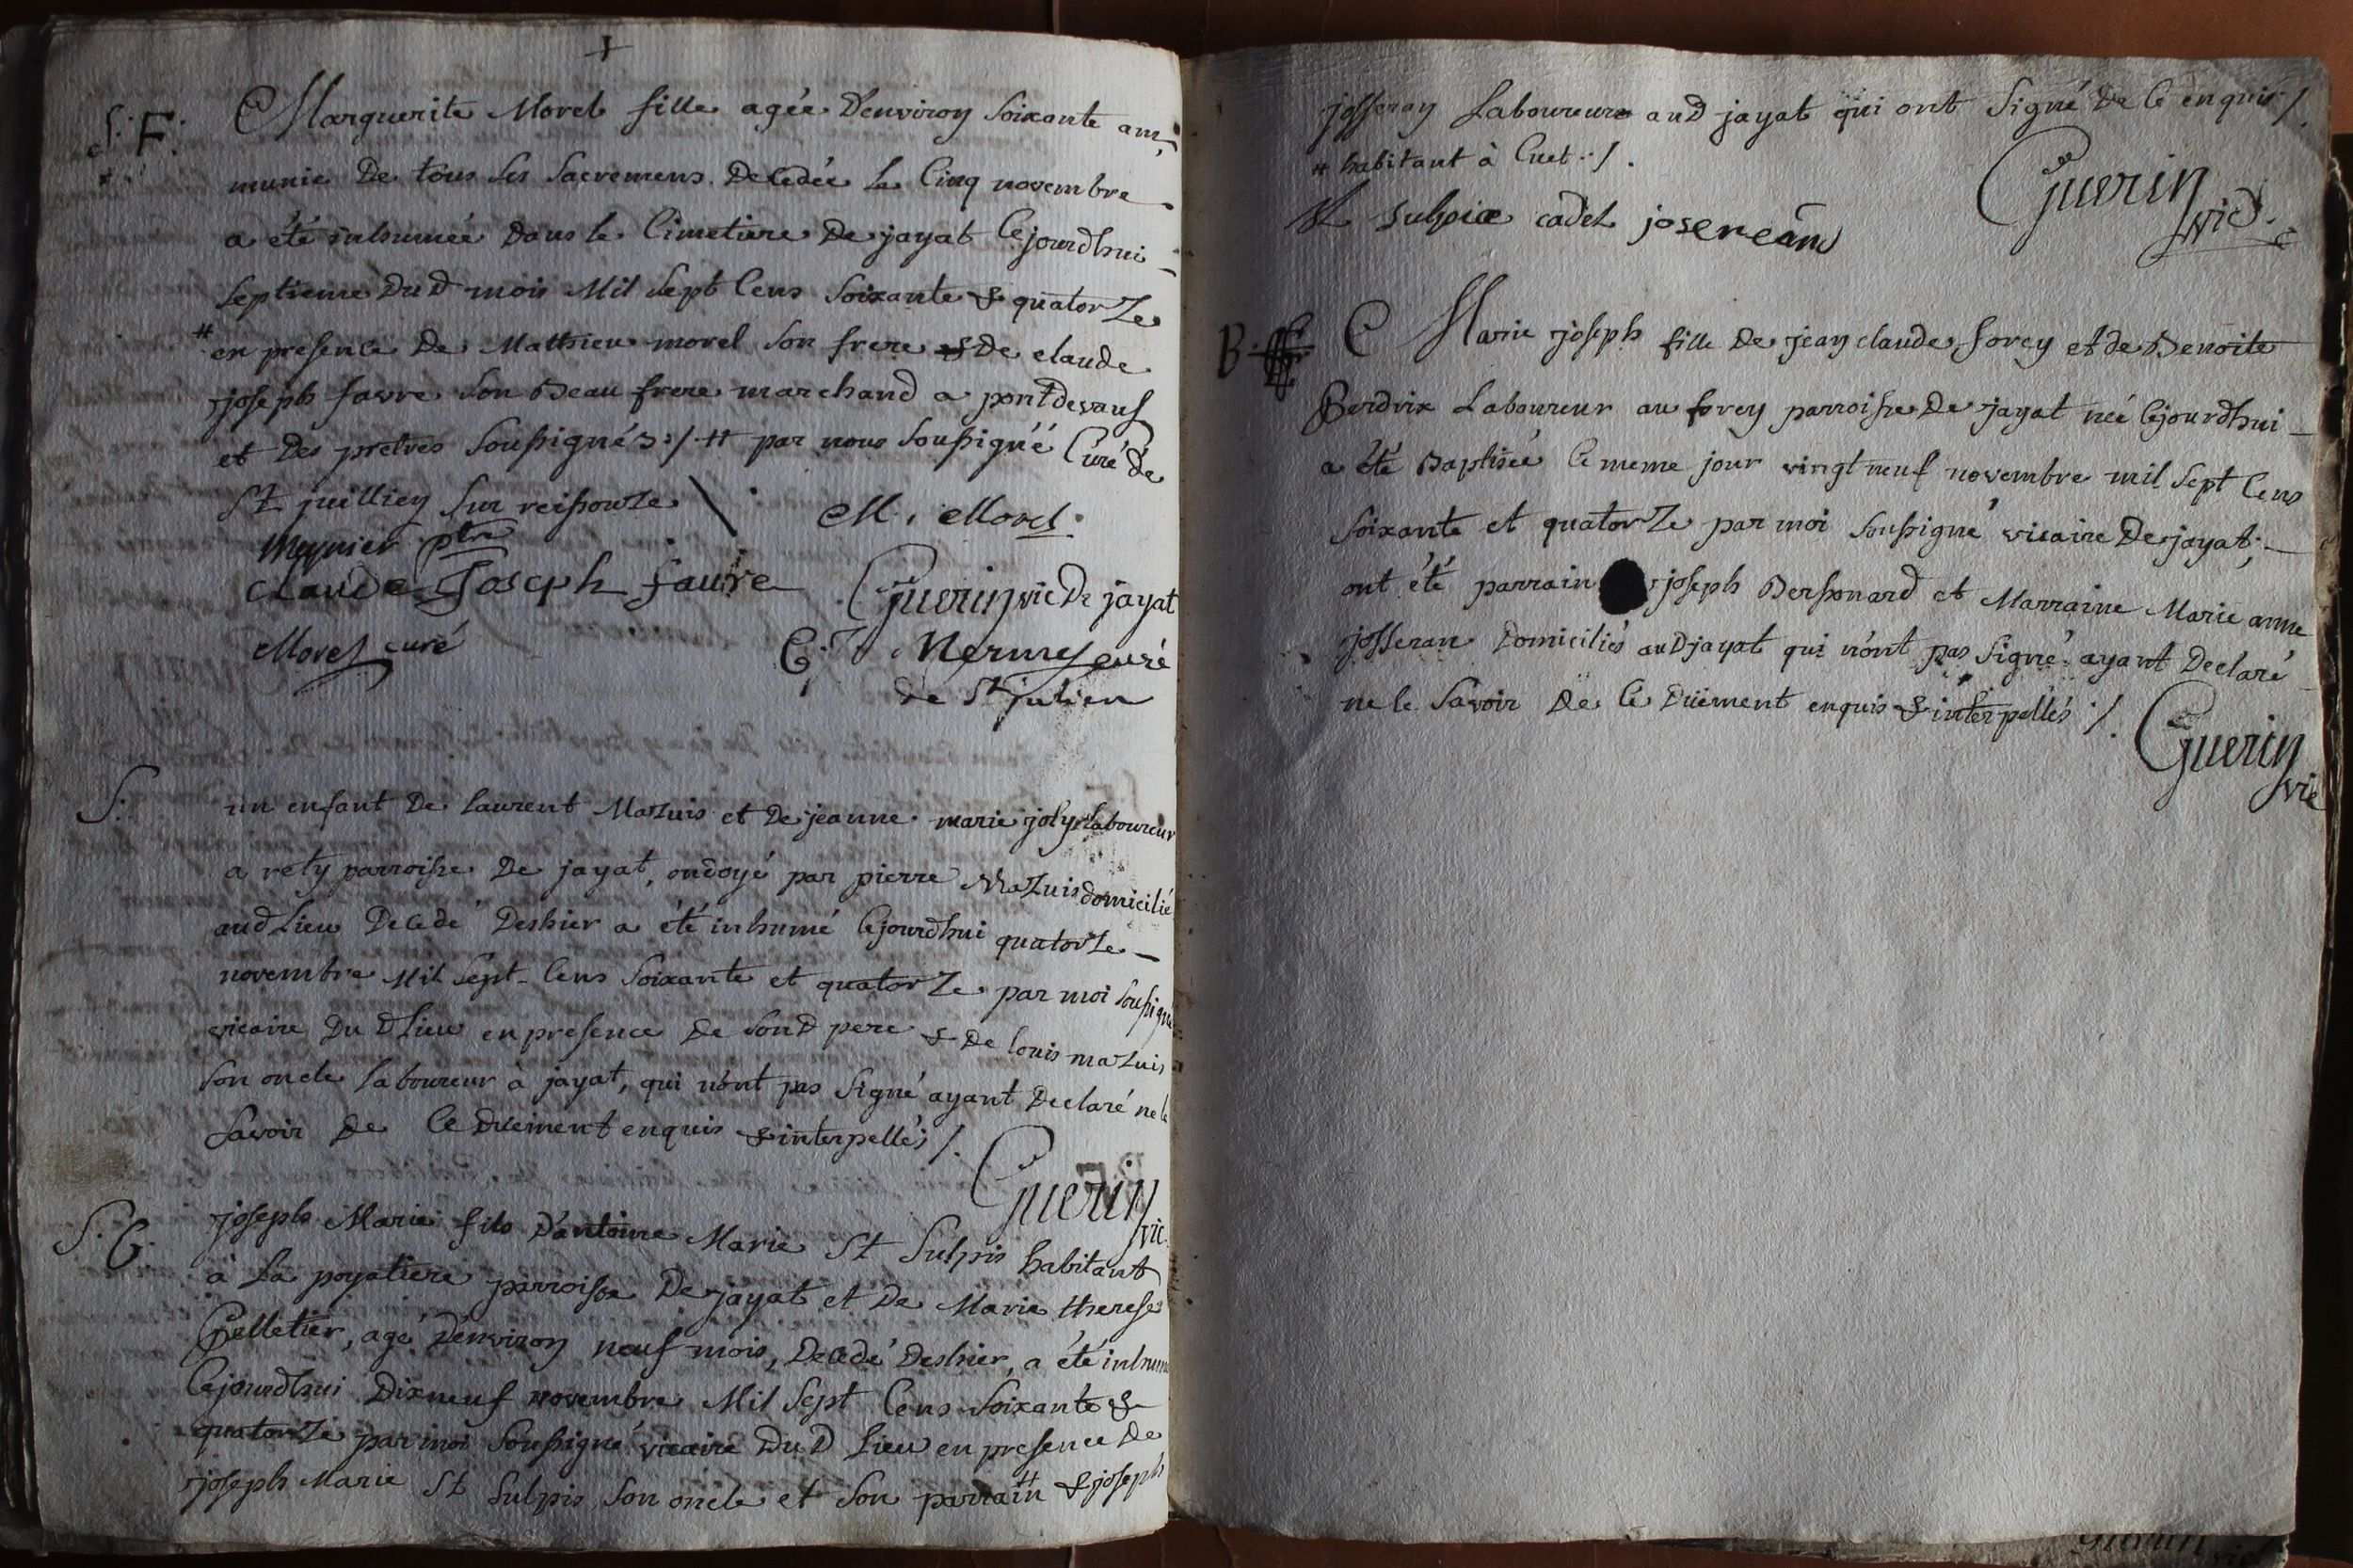 +
S: F: Marguerite Morel fille agée d'environ Soixante ans,
munie De tous les Sacremens Decedée Le Cinq novembre
a été inhumée dans le Cimetiere De jayat Cejourdhui
Septieme DuD mois Mil Sept Cens Soixante & quatorze
# en presence De Mathieu morel Son frere & De claude
joseph favre Son Beau frere marchand a pontdevaux
et Des pretres Soussignés ./. # par nous Soussigné Curé de
St juillien Sur reissouze
M. Morel
Meynier ptre
claude Joseph favre
Guerin vic De jayat
Morel curé
curé
de St julien
S: un enfant De laurent Mazuis et De jeanne marie joly laboureur
a rety parroisse De jayat, ondoyé par pierre Mazuis domicilié
auD Lieu Decedé Deshier a été inhumé Cejourdhui quatorze
novembre Mil Sept Cens Soixante et quatorze par moi Soussigné
vicaire Du D lieu en presence De SonD pere & De louis mazuis
Son oncle laboureur à jayat, qui n'ont pas Signé ayant Declaré ne le
Savoir De Ce Düement enquis & interpellés ./.
Guerin vic.
S. G. joseph Marie fils D'antoine Marie St Sulpis habitant
à La poyatiere parroisse De jayat et De Marie therese
Pelletier, agé D'environ neuf mois, Decedé Deshier, a été inhumé
Cejourdhui Dixneuf novembre Mil Sept Cens Soixante &
quatorze par moi Soussigné vicaire DuD Lieu en presence De
joseph Marie St Sulpis Son oncle et Son parrain # & joseph
josseran Laboureurs auD jayat qui ont Signé De Ce enquis ./.
# habitant à Cuet ./.
Guerin vic.
St sulpice cadet josereand
B. Marie joseph fille De jean claude forey et de Benoite
Perdrix Laboureur au forey parroisse De jayat née Cejourdhui
a été Baptisée le meme jour vingt neuf novembre mil Sept Cens
Soixante et quatorze par moi Soussigné vicaire De jayat;
ont été parrain joseph Bersonard et Marraine Marie anne
josseran Domiciliés auD jayat qui n'ont pas Signé ayant Declaré
ne le Savoir De Ce Düement enquis & interpellés ./.
Guerin vic